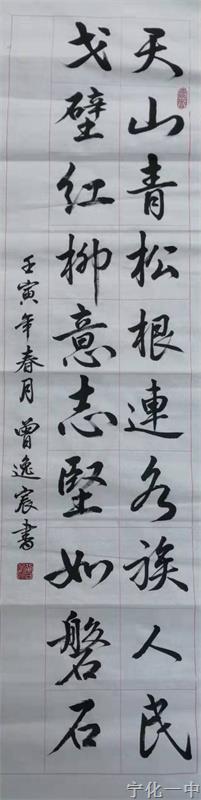 天山青松根連各族人民
戈壁红柳意志堅如磐石
壬寅年春月曾逸宸書
宁化一中